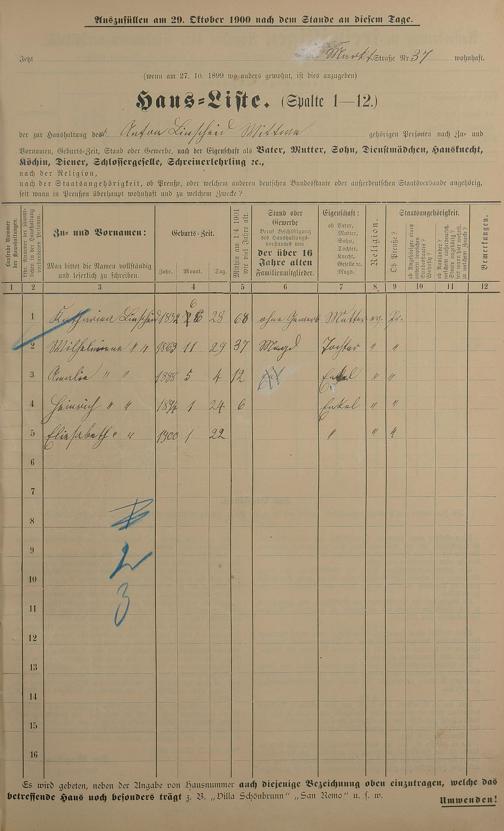 Auszufüllen am 29. Oktober 1900 nach dem Stande an diesem Tage.
Jetzt Markt Straße Nr 37 wohnhaft.
(wenn am 27. 10. 1899 wo anders gewohnt, ist dies anzugeben)
Haus=Liste. (Spalte 1—12.)
der zur Haushaltung des Anton Linscheid Wittwe gehörigen Personen nach Zu- und
Vornamen, Geburts-Zeit, Stand oder Gewerbe, nach der Eigenschaft als Vater, Mutter, Sohn, Dienstmädchen, Hausknecht,
Köchin, Diener, Schlossergeselle, Schreinerlehrling ꝛc.,
nach der Religion,
nach der Staatsangehörigkeit, ob Preuße, oder welchem anderen deutschen Bundesstaate oder außerdeutschen Staatsverbande angehörig,
seit wann in Preußen überhaupt wohnhaft und zu welchem Zwecke?
Zu- und Vornamen:
Man bittet die Namen vollständig
und leserlich zu schreiben.
Geburts-Zeit.
Jahr. Monat. Tag.
Stand oder
Gewerbe
der über 16
Jahre alten
Familienmitglieder.
Eigenschaft:
ob Vater,
Mutter,
Sohn,
Tochter,
Knecht,
Geselle ꝛc.
Magd.
Religion.
Staatsangehörigkeit.
Ob Preuße?
Bemerkungen.
1 2 3 4 5 6 7 8. 9 10 11 12
6
1 Katharina Linscheid 1832 28 68 ohne Gewerb Mutter ev. Pr.
2 Wilhelmine " " 1863 11 29 37 Magd Tochter " "
3 Amalie " " 1888 5 4 12 Enkel " "
4 Heinrich " " 1894 1 24 6 Enkel " "
5 Eliesabeth " " 1900 1 22 " " "
6
7
8
9
2
10
3
11
12
13
14
15
16
Es wird gebeten, neben der Angabe von Hausnummer auch diejenige Bezeichnung oben einzutragen, welche das
betreffende Haus noch besonders trägt z. B. „Villa Schönbrunn" „San Remo" u. s. w.
Umwenden!